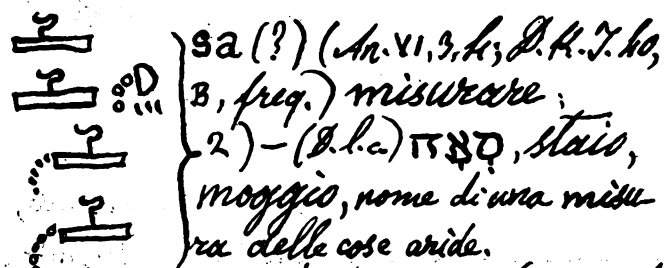 sa (?) (An. VI, 3, h; D. K. I. 40,
B, freq.) misurare;
2) — (D. l. c.) סְאָה, staio,
moggio, nome di una misu-
ra delle cose aride.